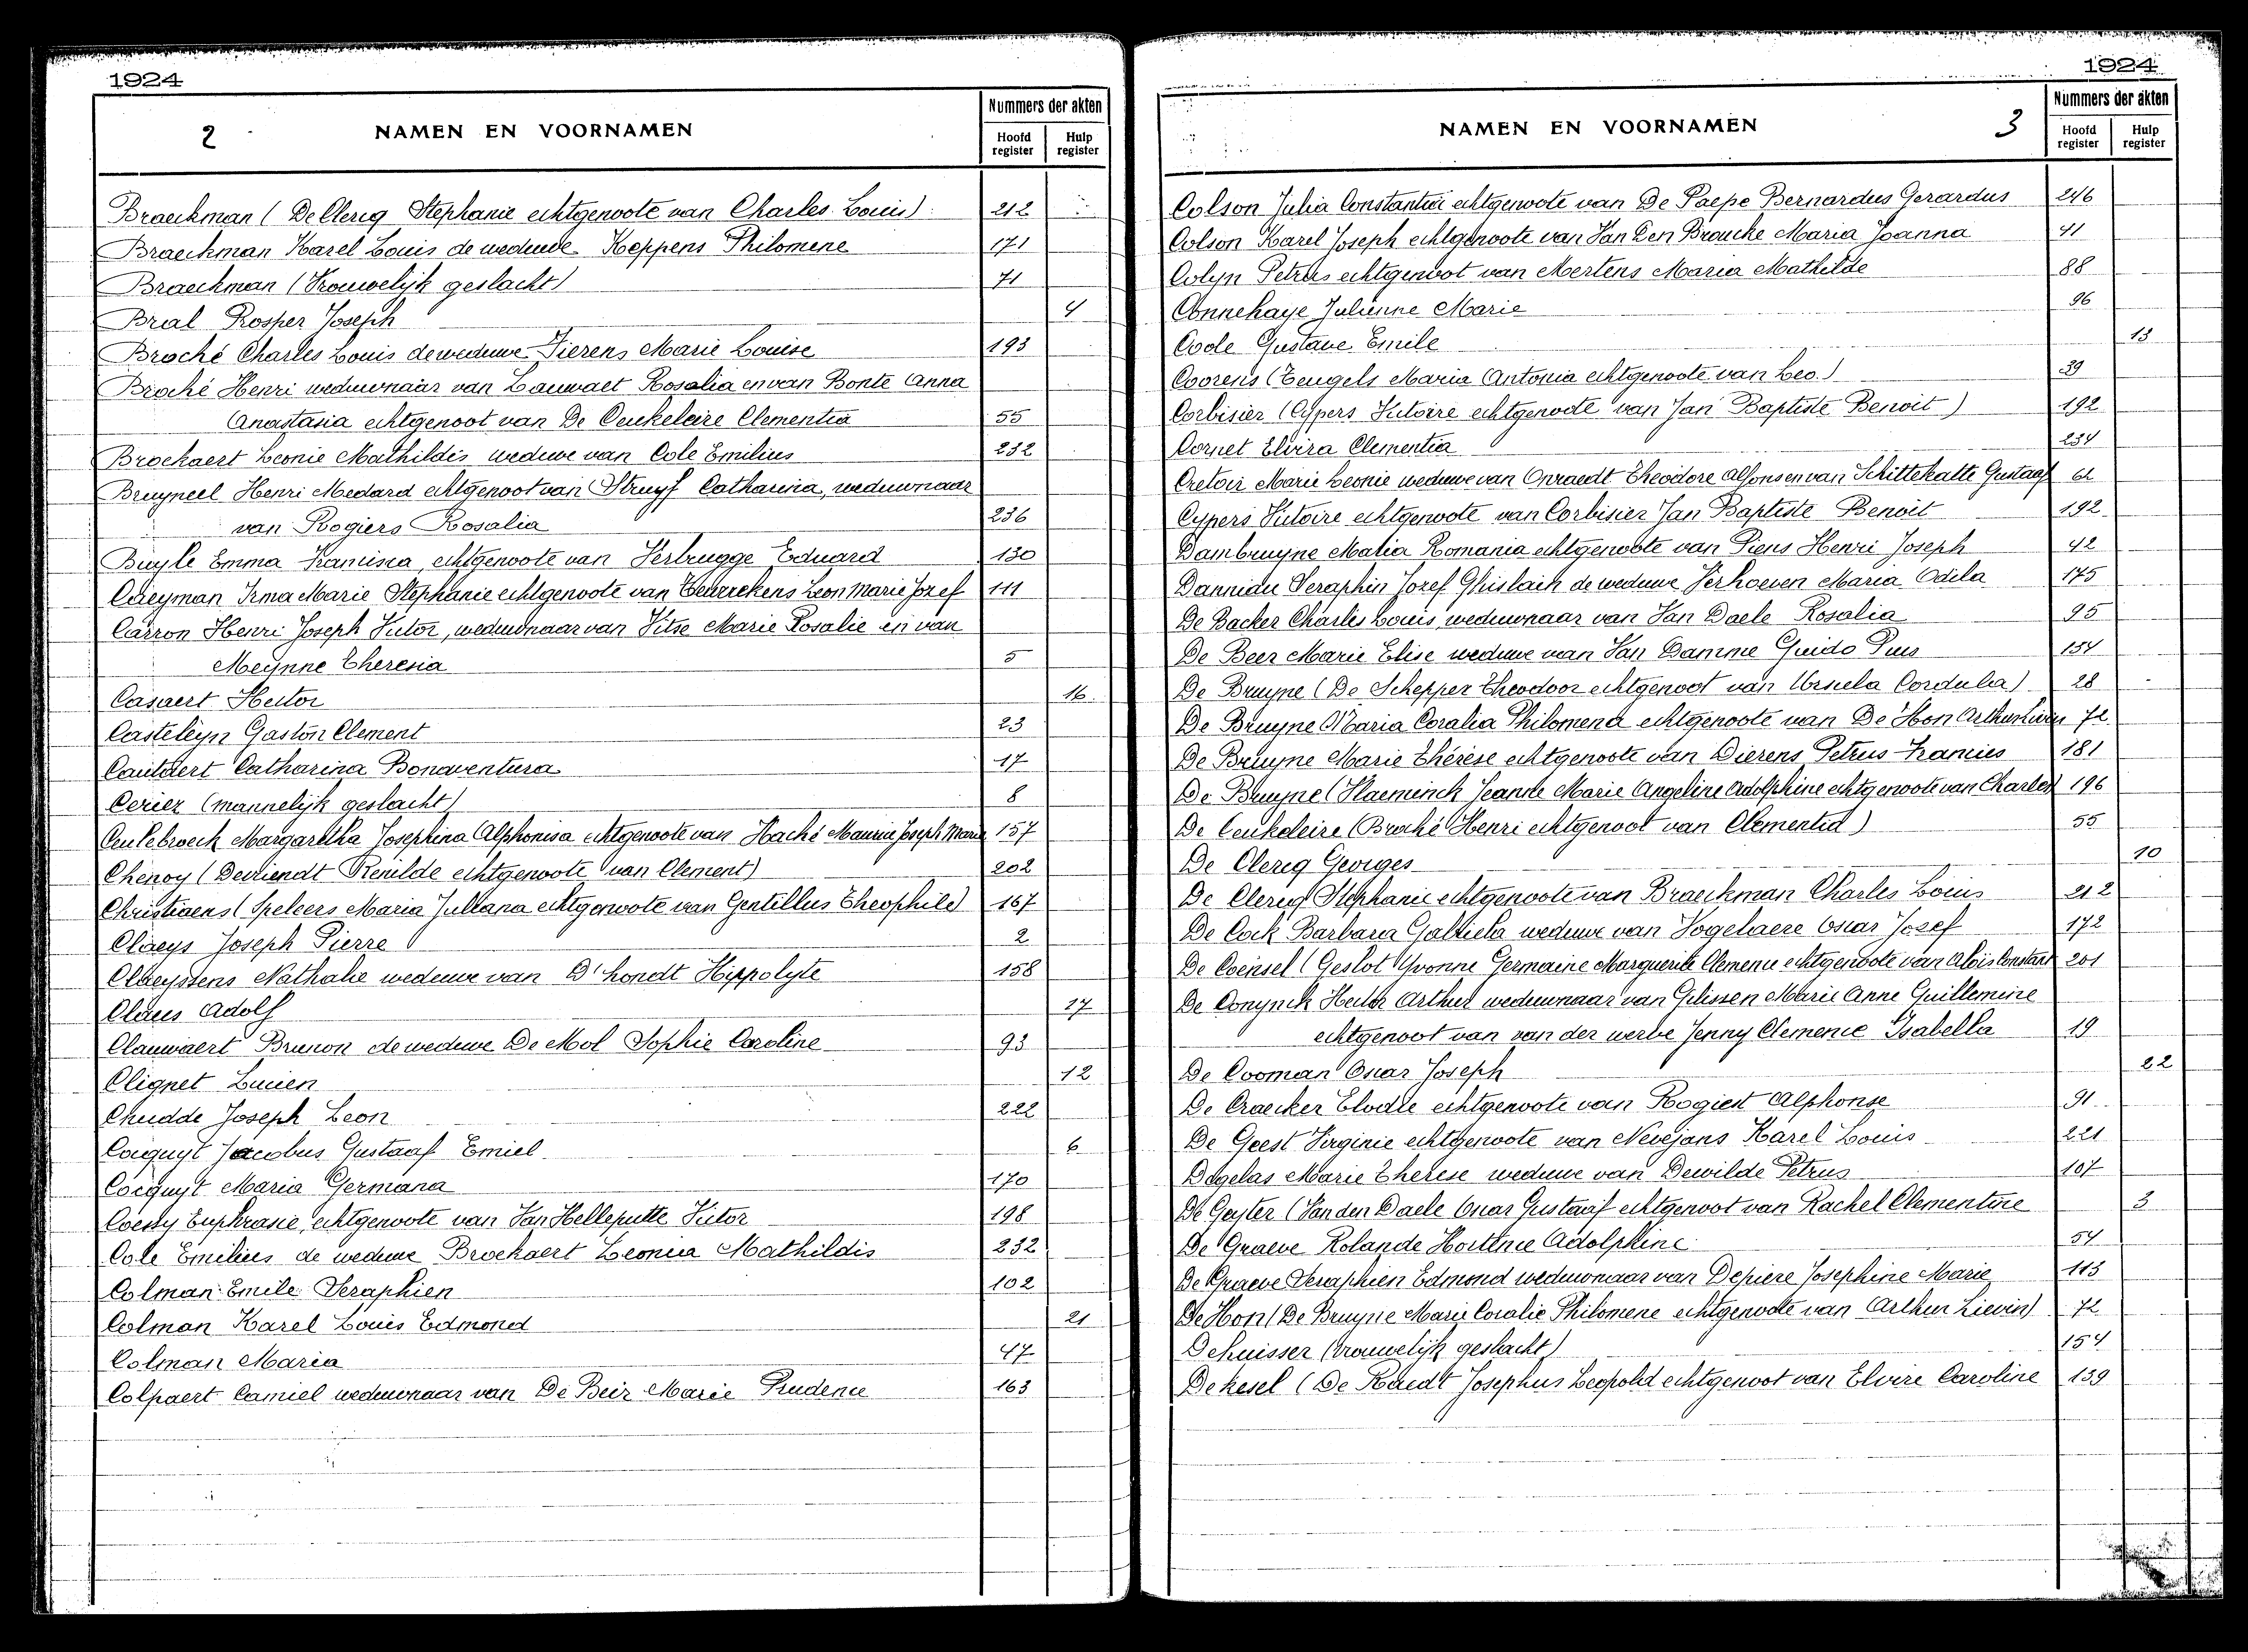 1924
2 NAMEN EN VOORNAMEN
Nummers der akten
Hoofd register Hulp register
Braeckman (De Clerig Stephanie echtgenoote van Charles Louis) 212
Braeckman Karel Louis de weduwe Keppens Philomene 171
Braeckman (Vrouwelijk geslacht) 71
Bral Rosper Joseph 4
Broché Charles Louis de weduwe Tierens Marie Louise 193
Broché Henri weduwnaar van Lauwaet Rosalia en van Bonte Anna
Anastasia echtgenoot van De Ceukeleire Clementia 55
Broekaert Leonie Mathildis weduwe van Cole Emilius 232
Bruyneel Henri Medard echtgenoot van Struyf Catharina, weduwnaar
van Rogiers Rosalia 236
Buyle Emma Francisca, echtgenoote van Verbrugge Eduard 130
Irma Marie Stephanie echtgenoote van Leon Marie Jozef 111
Carron Henri Joseph Victor, weduwnaar van Vitse Marie Rosalie en van
Meynne Theresia 5
Casaert Hector 16
Casteleyn Gaston Clement 23
Cautaert Catharina Bonaventura 17
Cerier (mannelijk geslacht) 8
Ceulebroeck Margaretha Josephina Alphonisa echtgenoote van Haché Maurice Joseph Marie 157
Chenoy (Devriendt Renilde echtgenoote van Clement) 202
Christiaens (Speleers Maria Juliana echtgenoote van Gentillus Theophile) 167
Claeys Joseph Pierre 2
Claeyssens Nathalie weduwe van D'hondt Hippolyte 158
Claus Adolf 17
Clauwaert Brunon de weduwe De Mol Sophie Caroline 93
Clignet Lucien 12
Cnudde Joseph Leon 222
Cocquyt Jacobus Gustaaf Emiel 6
Cocquyt Maria Germana 170
Coessy Euphrasie, echtgenoote van Van Helleputte Victor 198
Cole Emilius de weduwe Broekaert Leonia Mathildis 232
Colman Emile Seraphien 102
Colman Karel Louis Edmond 21
Colman Maria 47
Colpaert Camiel weduwnaar van De Beir Marie Prudence 163
1924
NAMEN EN VOORNAMEN 3
Nummers der akten
Hoofd register Hulp register
Colson Julia Constantia echtgenoote van De Paepe Bernardus Gerardus 216
Colson Karel Joseph echtgenoote van Van Den Broucke Maria Joanna 41
Colyn Petrus echtgenoot van Mertens Maria Mathilde 88
Connehaye Julienne Marie 96
Coole Gustave Emile 13
Coorens (Teugels Maria Antonia echtgenoote van Leo.) 39
Corbisier (Cypers Victoire echtgenoote van Jan Baptiste Benoit) 192
Cornet Elvira Clementia 234
Cretoir Marie Leonie weduwe van Onraedt Theodore Alfons en van Schittekatte Gustaaf
Cypers Victoire echtgenoote van Corbisier Jan Baptiste Benoit 192
Dambruyne Matia Romania echtgenoote van Piens Henri Joseph 42
Seraphin Jozef Ghislain de weduwe Verhoeven Maria Odila 175
De Backer Charles Louis weduwnaar van Van Daele Rosalia 95
De Beer Marie Elise weduwe van Van Damme Guido Pius 154
De Bruyne (De Schepper Theodoor echtgenoot van Ursula Cordulia) 28
De Bruyne Maria Coralia Philomena echtgenoote van De Hon Arthur Livin 72
De Bruyne Marie Thérèse echtgenoote van Dierens Petrus Francies 181
De Bruyne (Vlaeminck Jeanne Marie Angeline Adolphine echtgenoote van Charles) 196
De Ceukeleire (Broché Henri echtgenoot van Clementia) 55
De Clerig Georges 10
De Clerig Stephanie echtgenoote van Braeckman Charles Louis 212
De Cock Barbara weduwe van Vogelaere Oscar Jozef 172
De Coensel (Geslot Yvonne Germaine Marguerite Clemence echtgenoote van Aloïs Constant 201
De Conynck Hector Arthur weduwnaar van Gilissen Marie Anne Guillemine
echtgenoot van van der werve Jenny Clemence Isabella 19
De Cooman Oscar Joseph 22
De Craecker Elodie echtgenoote van Rogiest Alphonse 91
De Geest Virginie echtgenoote van Nevejans Karel Louis 221
Degelas Marie Therese weduwe van Dewilde Petrus 107
De Geyter (Van den Daele Oscar Gustaaf echtgenoot van Rachel Clementine 3
De Graeve Rolande Hortence Adolphine 54
De Graeve Seraphien Edmond weduwnaar van Depiere Josephine Marie 113
De Hon (De Bruyne Marie Coralie Philomene echtgenoote van Arthur Lievin) 72
Dehuisser (vrouwelijk geslacht) 154
Dekesel (De Raedt Josephus Leopold echtgenoot van Elvire Caroline 139